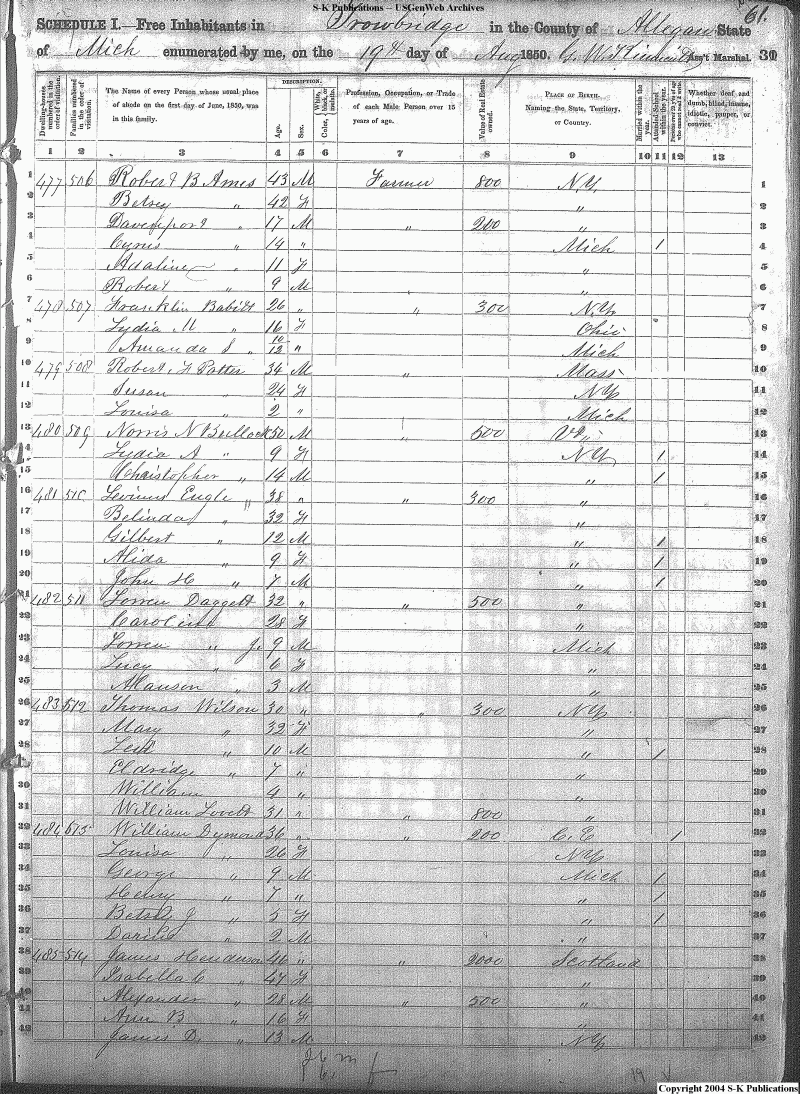 S-K Publications – USGenWeb Archives
61.
SCHEDULE I.—Free Inhabitants in Trowbridge in the County of Allegan State
of Mich enumerated by me, on the 19th day of Aug 1850. Ass't Marshal. 31
Dwelling-houses numbered in the order of visitation. Families numbered in the order of visitation. The Name of every Person whose usual place of abode on the first day of June, 1850, was in this family. DESCRIPTION. Age. Sex. Color, White, black, or mulatto. Profession, Occupation, or Trade of each Male Person over 15 years of age. Value of Real Estate owned. PLACE OF BIRTH. Naming the State, Territory, or Country. Married within the year. Attended School within the year. Persons over 20 y'rs of age who cannot read & write. Whether deaf and dumb, blind, insane, idiotic, pauper, or convict.
1 2 3 4 5 6 7 8 9 10 11 12 13
1 477 506 Robert B Ames 43 M Farmer 800 N.Y. 1
2 Betsey " 42 F " 2
3 Davenport " 17 M " 200 " 3
4 Cyrus " 14 " Mich 1 4
5 Adaline " 11 F " 5
6 Robert " 9 M " 6
7 478 507 Franklin Babitt 26 " " 300 N.Y. 7
8 Lydia M " 16 F Ohio 8
9 Amanda S " 10/12 " Mich 9
10 479 508 Robert F Patter 34 M " Mass 10
11 Susan " 24 F NY 11
12 Louisa " 2 " Mich 12
13 480 509 Norris N Bullock 50 M " 600 Vt 13
14 Lydia A " 9 F NY 1 14
15 Christopher " 14 M " 1 15
16 481 510 Levinus Engle " 38 " " 300 " 16
17 Belinda " 32 F " 17
18 Gilbert " 12 M " 1 18
19 Alida " 9 F " 1 19
20 John H " 7 M " 1 20
21 482 511 Lorren Daggett 32 " " 500 " 21
22 Caroline 28 F " 22
23 Lorren " J. 9 M Mich 23
24 Lucy " 6 F " 24
25 Alanson " 3 M " 25
26 483 512 Thomas Wilson 30 " " 300 NY 26
27 Mary " 32 F " 27
28 Levi " 10 M " 1 28
29 Eldridge " 7 " " 29
30 William " 4 " " 30
31 William Lovett 31 " " 800 " 31
32 484 513 William Dymond 36 " " 200 C. E 1 32
33 Louisa " 26 F NY 33
34 George " 9 M Mich 1 34
35 Henry " 7 " " 1 35
36 Betsy J " 5 F " 1 36
37 " 2 M " 37
38 485 514 James Henderson 46 " " 2000 Scotland 38
39 Isabella C " 47 F " 39
40 Alexander " 28 M " 500 " 40
41 Ann B " 16 F " 41
42 James D. " 13 M NY 42
Copyright 2004 S-K Publications